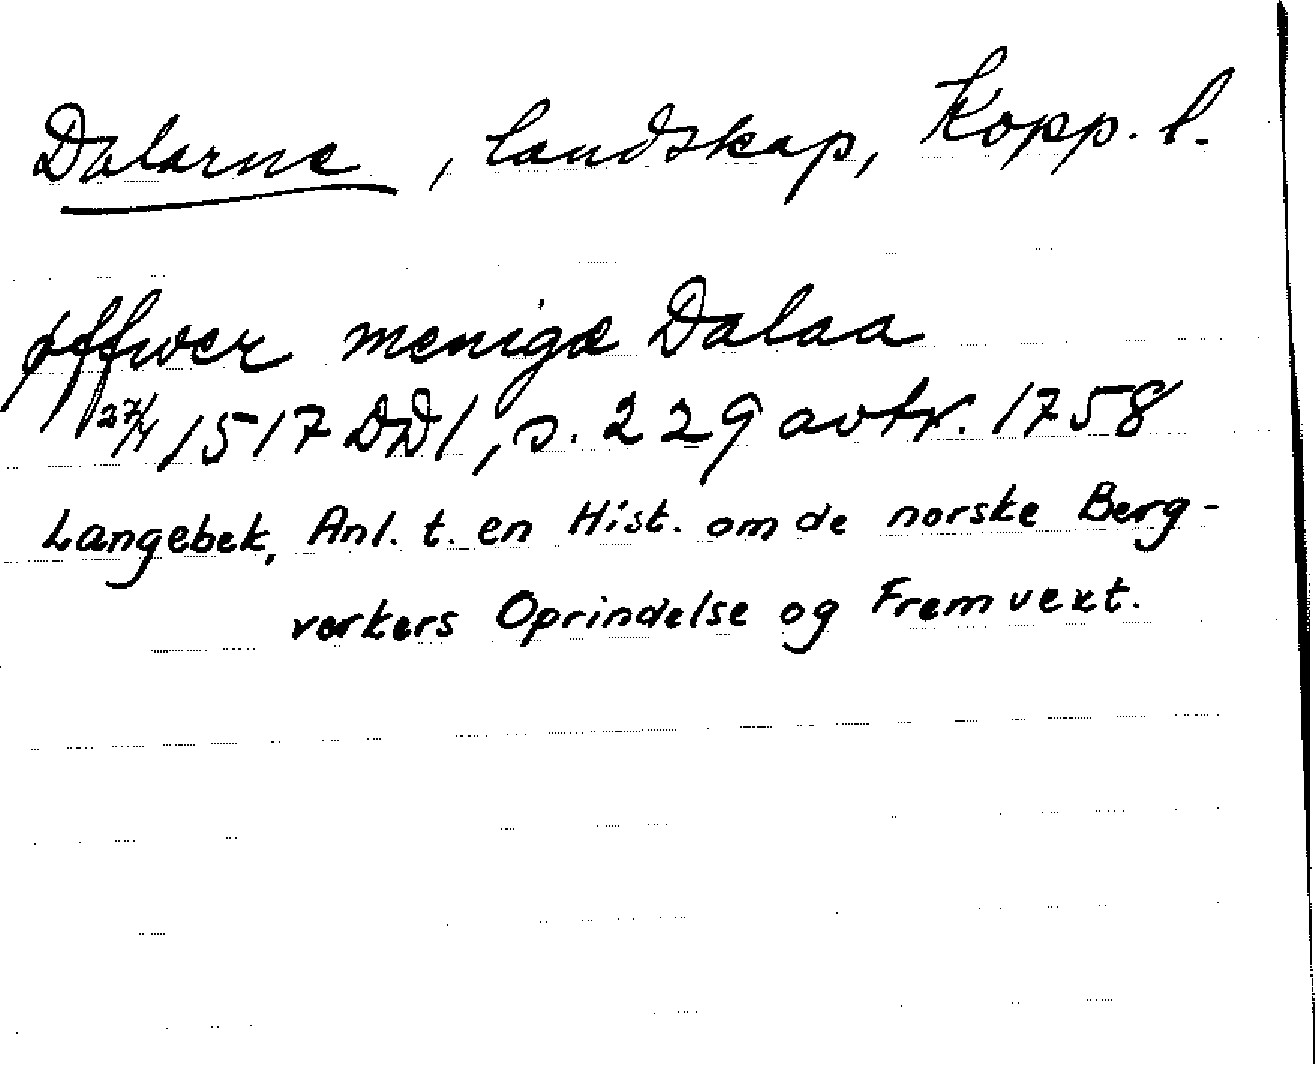 Dalarne, landskap, Kopp. l.
øffwer menige Dalaa
27/4 1517 DD1, s. 229 avtr. 1758
Langebek, Anl. t. en Hist. om de norske Berg-
verkers Oprindelse og Fremvext.